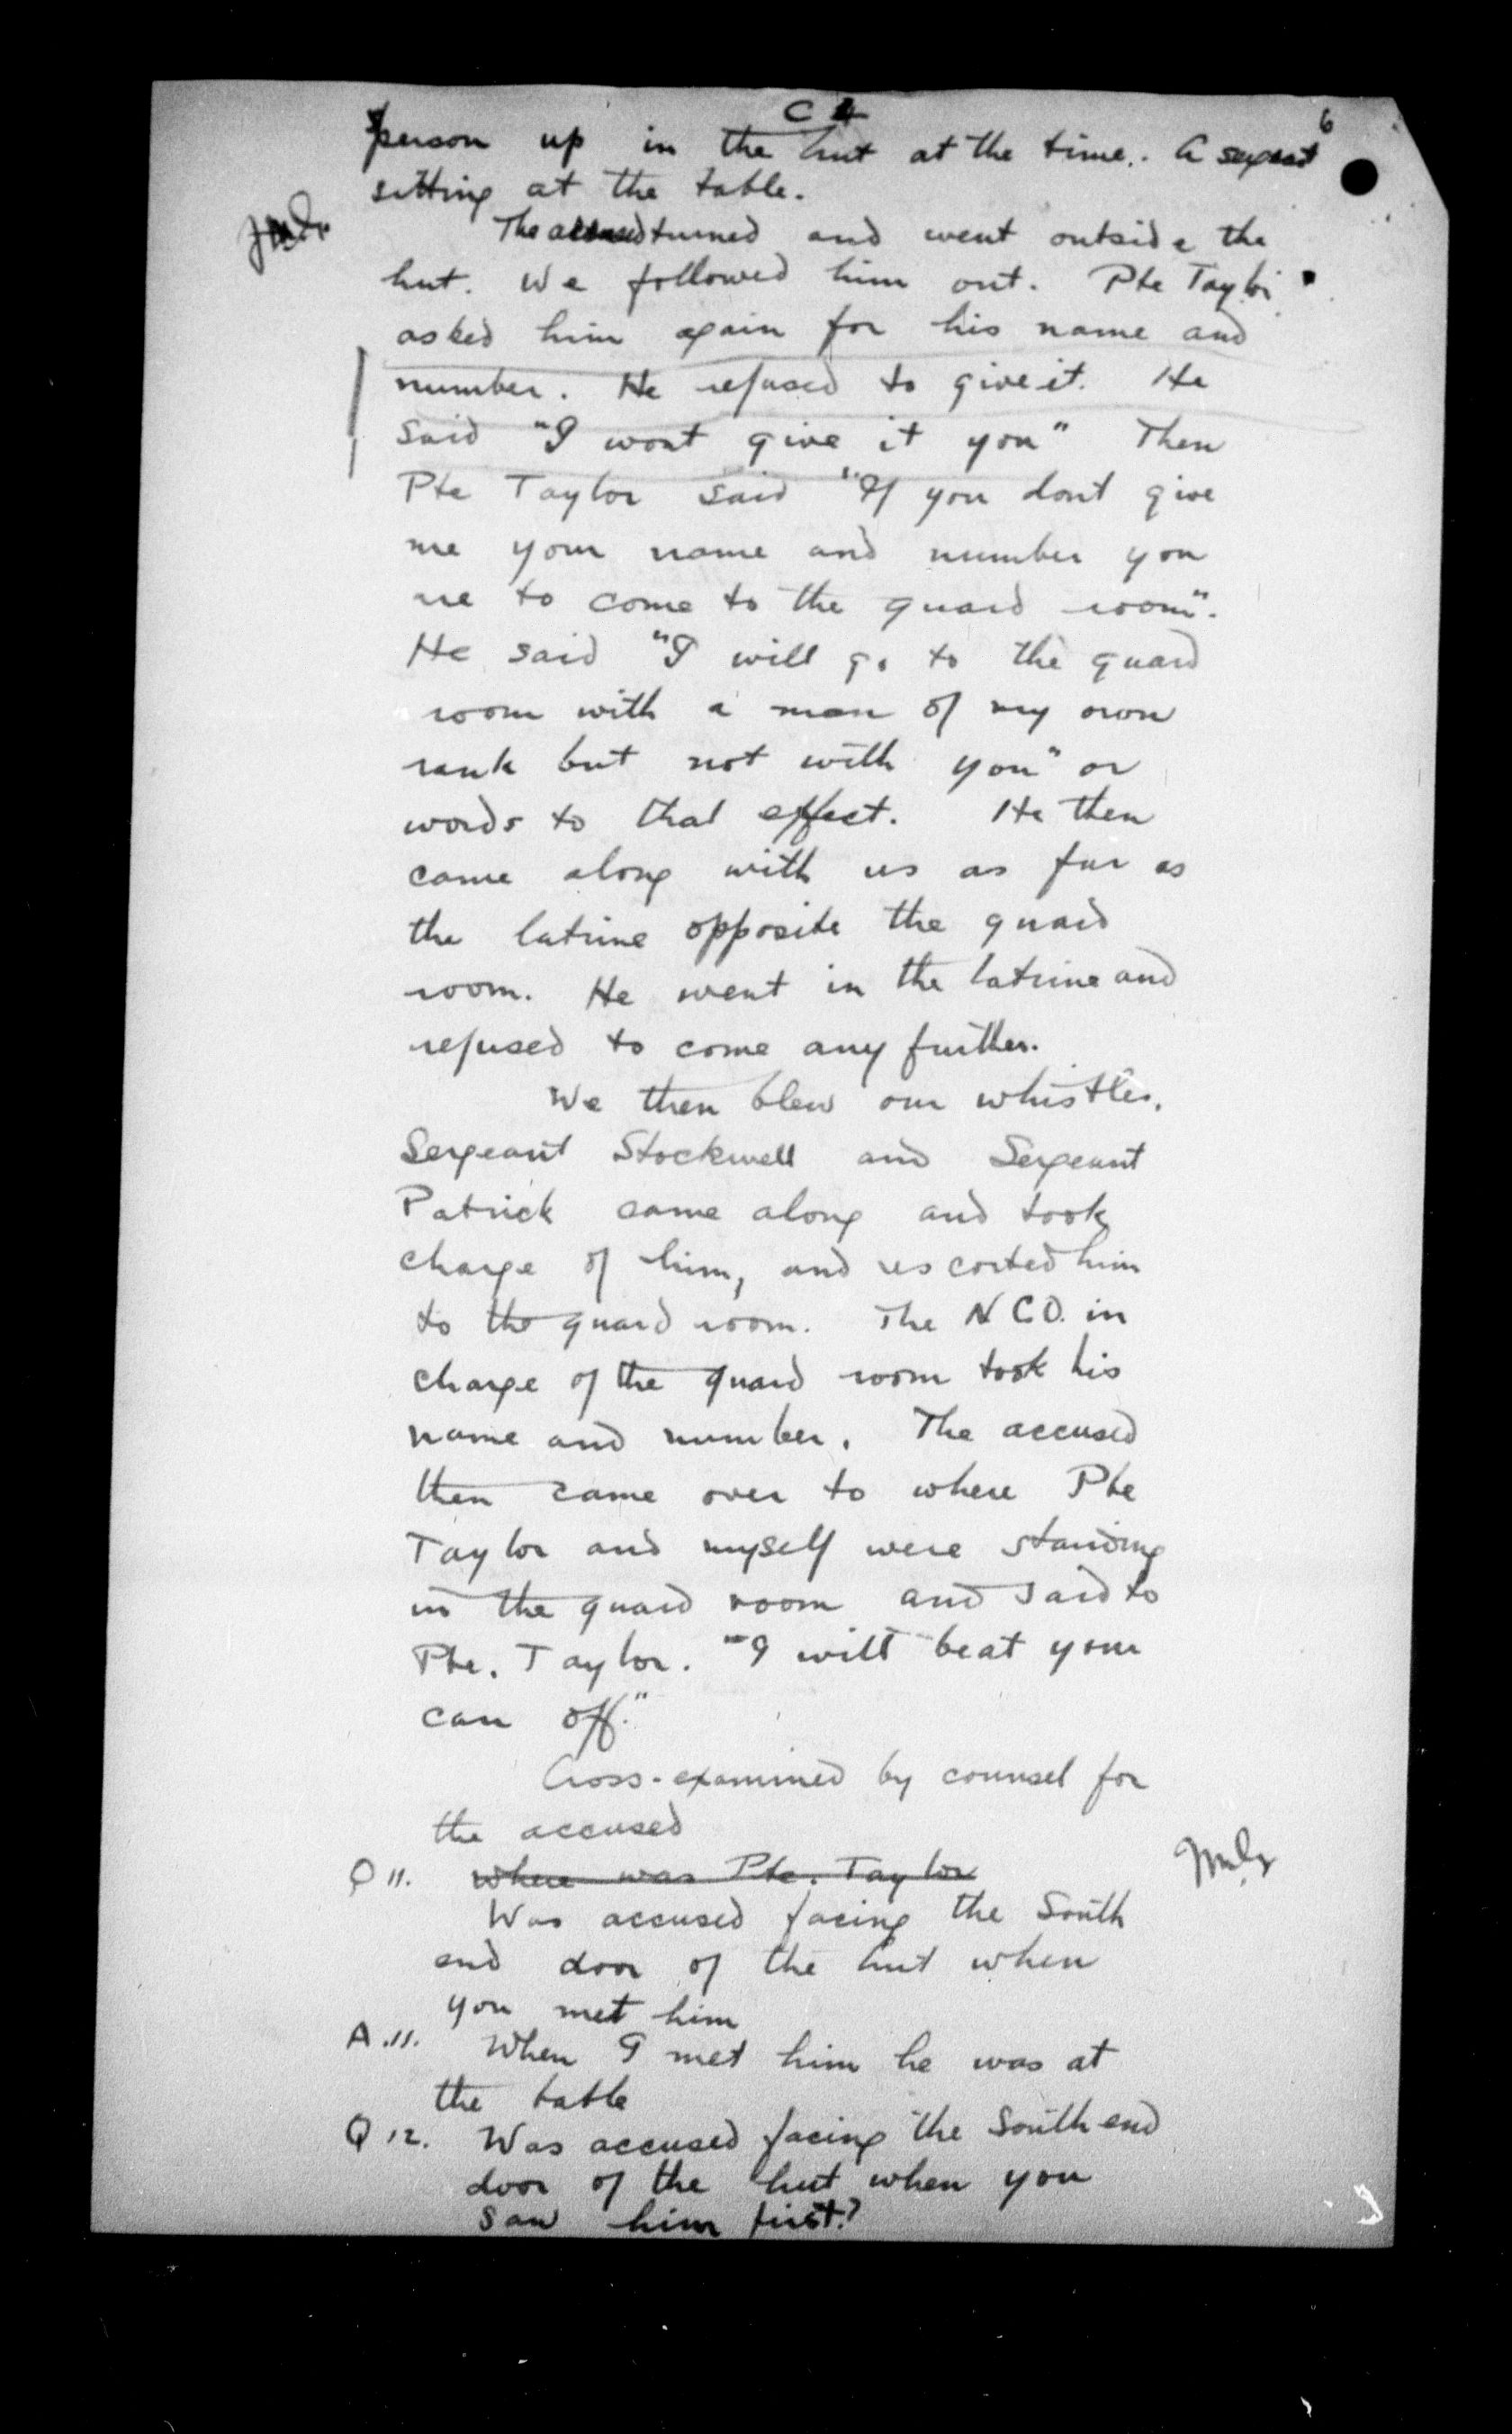 C 4
6
person up in the hut at the time. A sergeant
sitting at the table.
The accused turned and went outside the
hut. We followed him out. Pte Taylor
asked him again for his name and
number. He refused to give it. He
said "I wont give it you" Then
Pte Taylor said "If you dont give
me your name and number you
ve to come to the guard room".
He said "I will go to the guard
room with a man of my own
rank but not with you" or
words to that effect. He then
came along with us as far as
the latrine opposite the guard
room. He went in the latrine and
refused to come any further.
We then blew our whistles.
Sergeant Stockwell and Sergeant
Patrick came along and took
charge of him, and escorted him
to the guard room. The NCO. in
charge of the guard room took his
name and number. The accused
then came over to where Pte
Taylor and myself were standing
in the guard room and said to
Pte. Taylor. "I will beat your
can off."
Cross-examined by counsel for
the accused
Q 11. Where was Pte. Taylor
Was accused facing the South
end door of the hut when
you met him
A.11. When I met him he was at
the table
Q 12. Was accused facing the South end
door of the hut when you
saw him first?